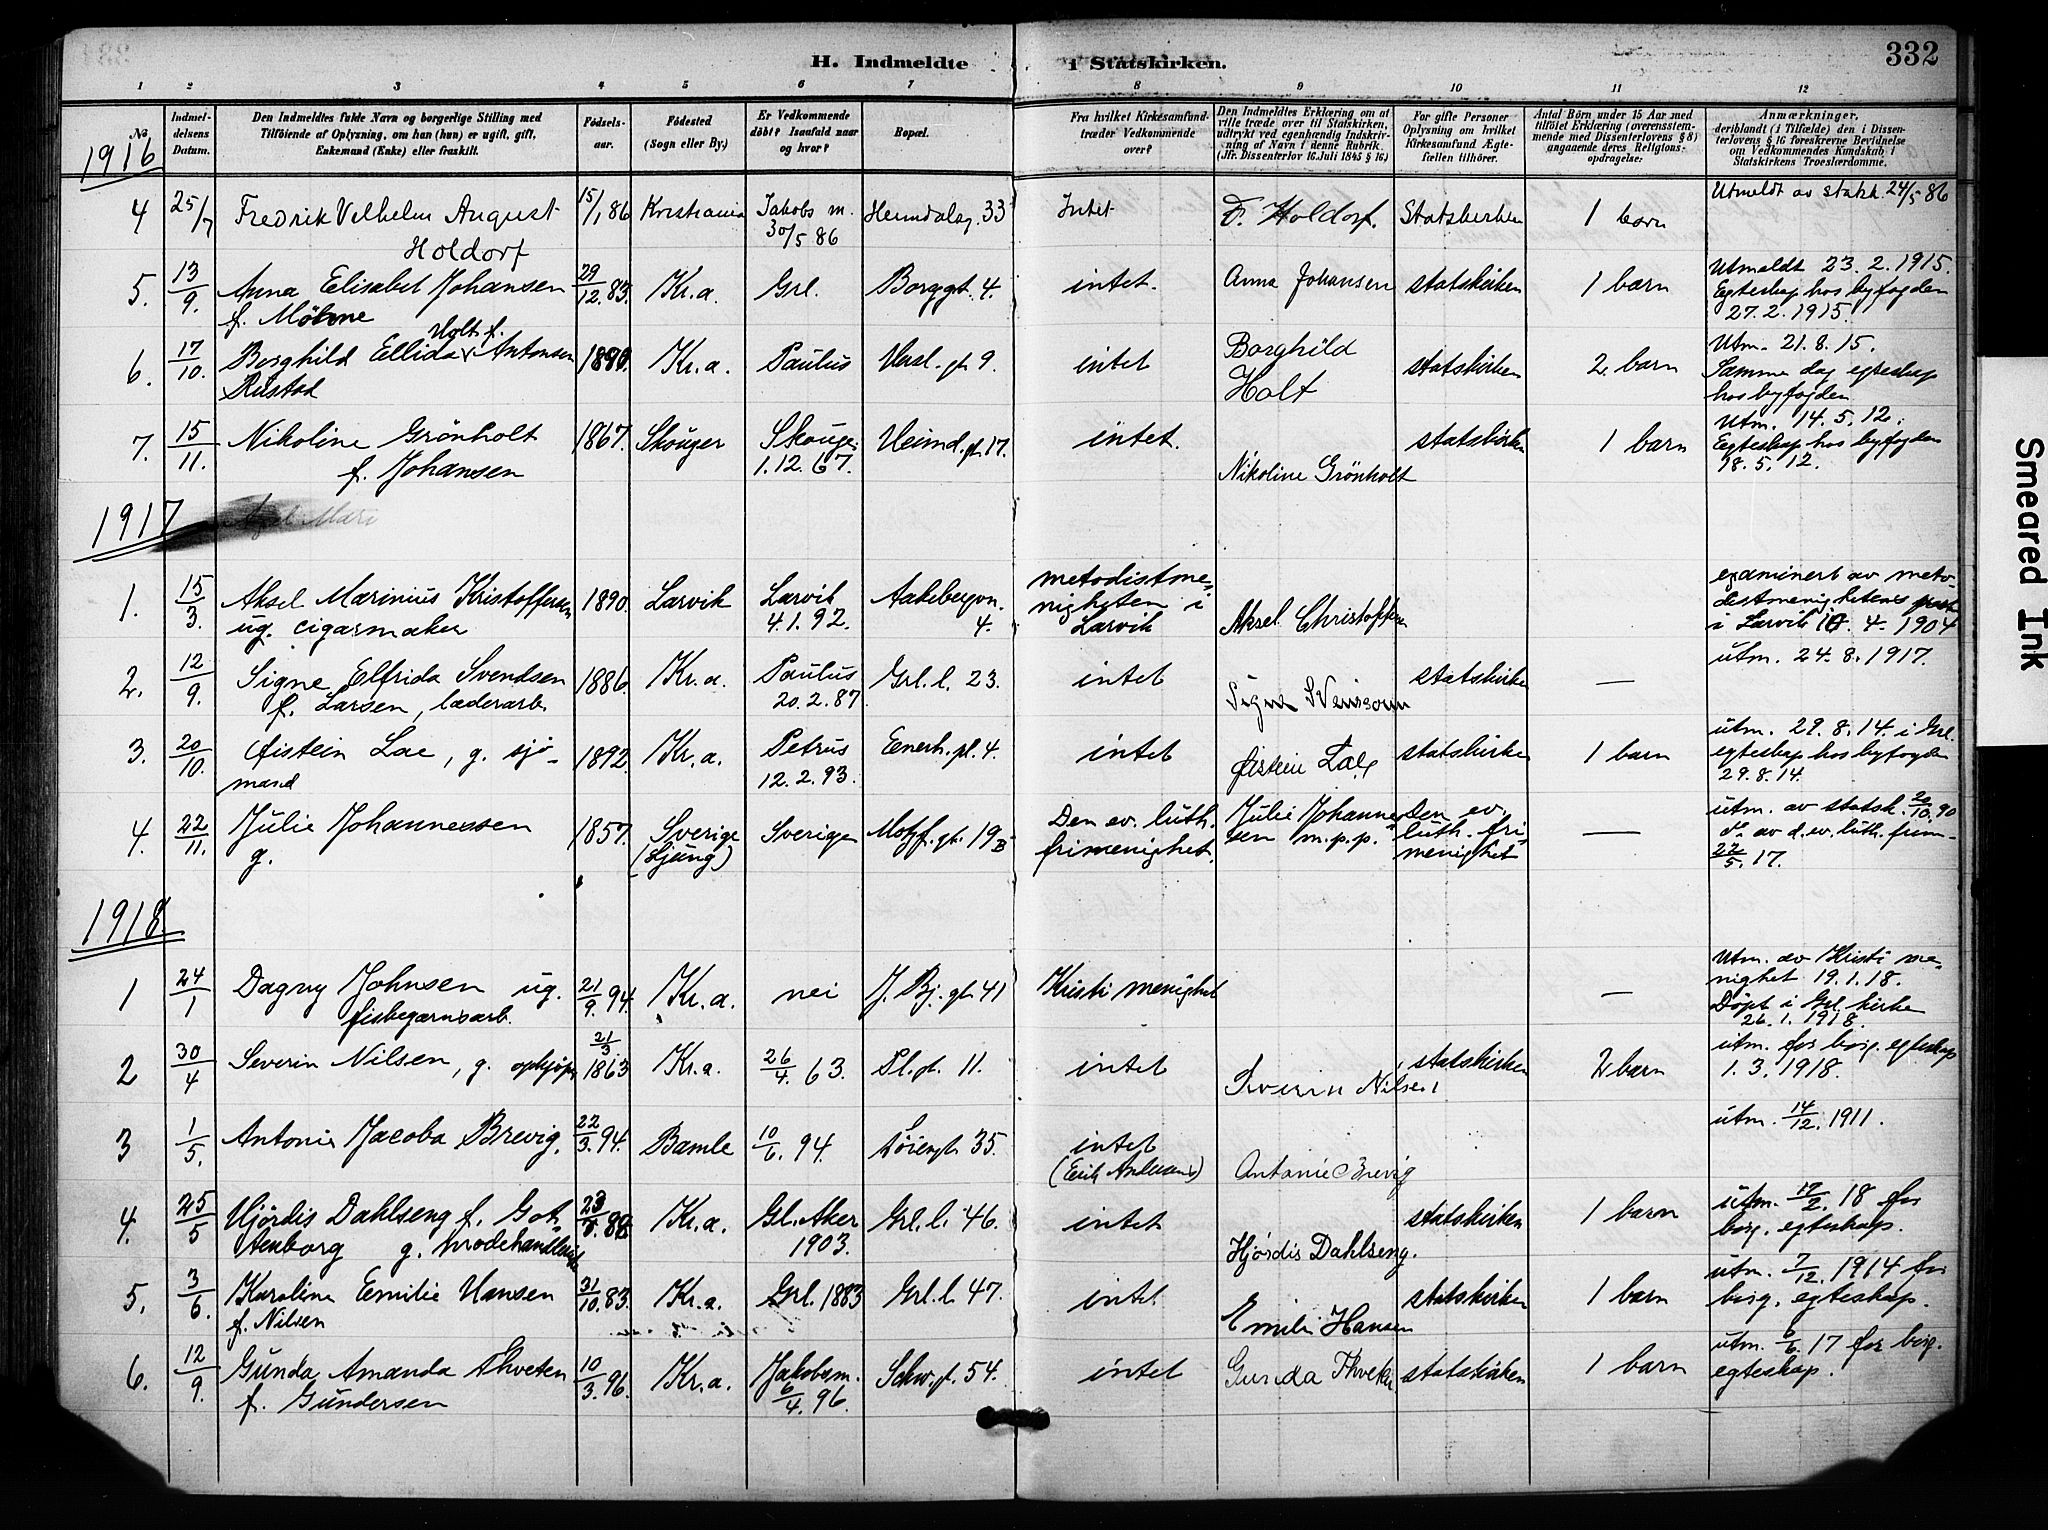 H. Indmeldte i Statskirken.
332
1 2 3 4 5 6 7 8 9 10 11 12
No.
Indmeldelsens Datum.
Den Indmeldtes fulde Navn og borgerlige Stilling med Tilföiende af Oplysning, om han (hun) er ugift, gift, Enkemand (Enke) eller fraskilt.
Födselsaar.
Födested (Sogn eller By.)
Er Vedkommende döbt? Isaafald naar og hvor?
Bopæl.
Fra hvilket Kirkesamfund træder Vedkommende over?
Den Indmeldtes Erklæring om at ville træde over til Statskirken, udtrykt ved egenhændig Indskrivning af Navn i denne Rubrik. (Jfr. Dissenterlov 16. Juli 1845 § 16.)
For gifte Personer Oplysning om hvilket Kirkesamfund Ægtefællen tilhörer.
Antal Börn under 15 Aar med tilföiet Erklæring (overensstemmende med Dissenterlovens § 8) angaaende deres Religionsopdragelse:
Anmærkninger, deriblandt (i Tilfælde) den i Dissenterlovens § 16 foreskrevne Bevidnelse om Vedkommendes Kundskab i Statskirkens Troeslærdomme.
1916
4 25/7 Fredrik Velhelm August Holdorf 15/1 86 Kristiania Jakobs m. 30/5 86 Heimdalsg. 33 Intet F. Holdorf. Statskirken 1 barn Utmeldt av statsk. 24/5 86
5. 13/9. Anna Elisabet Johansen f. Möhne 29/12 83. Kr.a. Grl. Borggt. 4. intet. Anna Johansen statskirken 1 barn Utmeldt 23.2.1915. Egteskap hos byfogden 27.2.1915.
6. 17/10. Borghild Ellida Holt f. Antonsen Rustad Kr.a. Paulus Hersl. gt. 9. intet Borghild Holt statskirken 2 barn Utm. 21.8.15. Samme dag egteskap hos byfogden
7. 15/11. Nikoline Grönholt f. Johansen 1867. Skouger Skouger 1.12.67. Heimd. gt. 17. intet. Nikoline Grönholt statskirken 1 barn Utm. 14.5.12. Egteskap hos byfogden 18.5.12.
1917
1. 15/3. Aksel Marinius Kristoffersen ug. cigarmaker 1890. Larvik Larvik 4.1.92. Aakebergvn. 4. metodistmenigheten i Larvik Aksel Christoffersen examinert av metodistmenighetens prest i Larvik 4. 1904
2. 12/9. Signe Elfrida Svendsen f. Larsen, læderarb. 1886. Kr.a. Paulus 20.2.87 Grl. l. 23. intet Signe statskirken — utm. 24.8.1917.
3. 20/10. Øistein Lae, g. sjömand 1892. Kr.a. Petrus 12.2.93. Enerh. pl. 4. intet Øistein Lae statskirken 1 barn utm. 29.8.14. i Grl. egteskap hos byfogden 29.8.14.
4. 22/11. Julie Johannessen g. 1857. Sverige (Ljung) Sverige Motzf. gt. 19B Den ev. luth. frimenighet. Julie Johannessen m.p.p. Den ev. luth. frimenighet — utm. av statsk. 20/10. 90 do av d. ev. luth. frim. 22/5. 17.
1918
1 24/1 Dagny Johnsen ug. fiskegarnsarb. 21/9. 94. Kr.a. nei J. Bj. gt. 41 Kristi menighet — Utm. av Kristi menighet 19.1.18. Døpt i Grl. kirke 26.1.1918.
2 30/4 Severin Nilsen, g. opkjøper 21/3 1863 Kr.a. 26/4. 63. Pl. gt. 11. intet Severin Nilsen statskirken 2 barn utm. for borg. egteskap 1.3.1918.
3 1/5. Antonie Jacoba Brevig. 22/3. 94. Bamle 10/6. 94. Löiengt. 35. intet (Erik Andersens) Antonie Brevig utm. 14/12. 1911.
4. 25/5 Hjördis Dahlseng f. Gotenborg g. modehandlerske Kr.a. Gl. Aker 1903. Grl. l. 46. intet Hjördis Dahlseng. statskirken 1 barn utm. 17/2. 18 for borg. egteskap.
5. 3/6. Karoline Emilie Hansen f. Nilsen 31/10. 83. Kr.a. Grl. 1883 Grl. l. 47. intet Emilie Hansen statskirken 1 barn utm. 7/12. 1914 for borg. egteskap.
6. 12/9. Gunda Amanda Thveten f. Gundersen 10/3. 96. Kr.a. Jakobs m. 6/4. 96. Schw. gt. 54. intet Gunda Thveten statskirken 1 barn utm. 6/6. 17 for borg. egteskap.
Smeared Ink